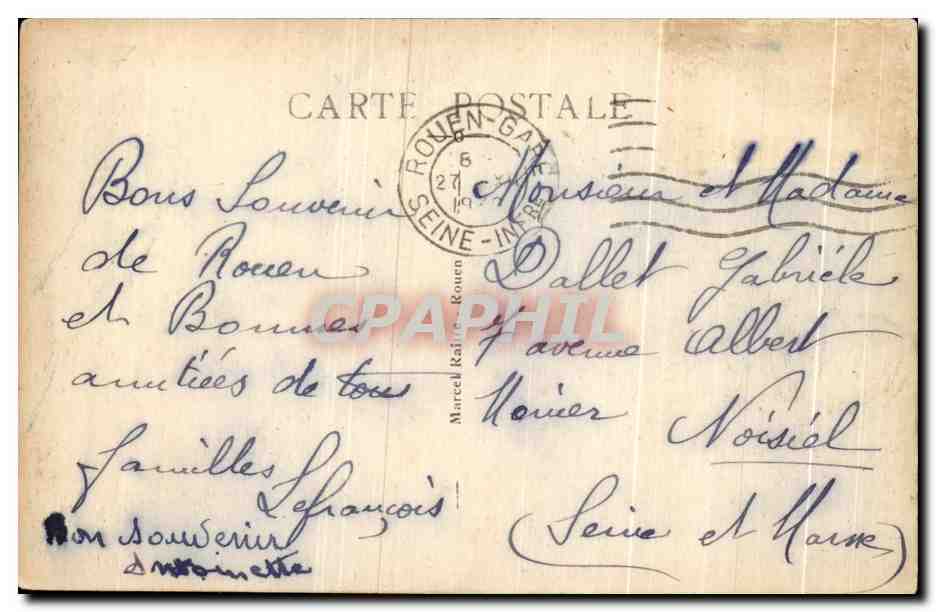 CARTE POSTALE
ROUEN-GARE
6
27
19
SEINE-INFRE
Bons Souvenir
de Rouen
et Bonnes
amitiées de tous
familles
Lefrançois
Bon souvenir
Antoinette
Marcel Rouen
CPAPHIL
Monsieur et Madame
Dallet Gabriele
7 avenue Albert
Menier
Noisiel
(Seine et Marne)